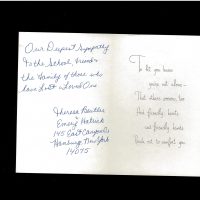 Our Deepest Sympathy
to the School, friends
the family of those who
have lost a loved One
Therese Beutler
Emery
145 East
Hamburg New York
14075
To let you know
you're not alone—
That others care, too
And friendly hearts
and friendly hands
Reach out to comfort you